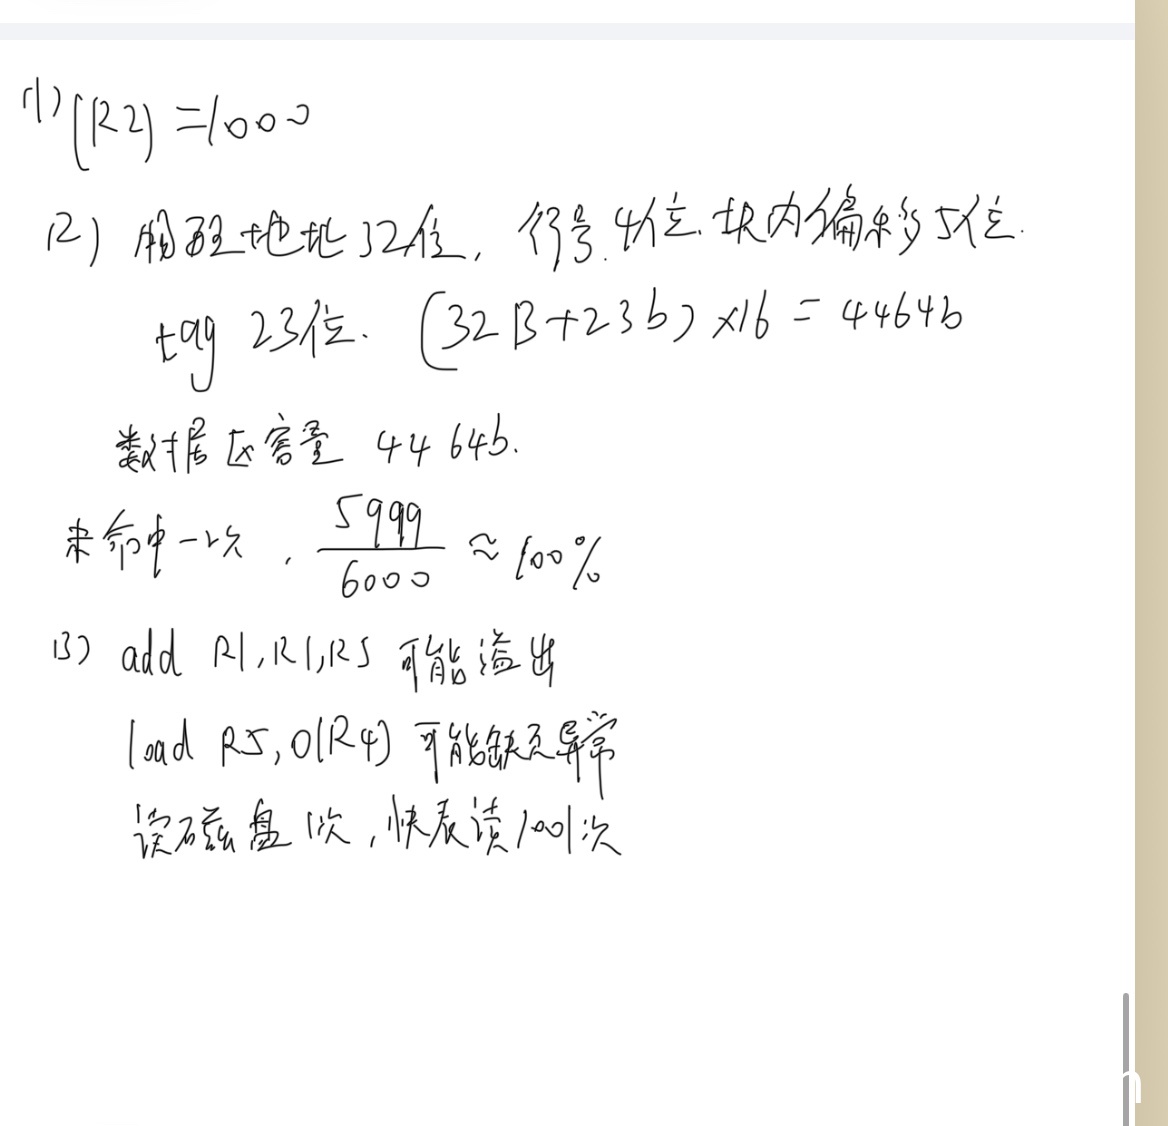 (1) (R2) =1000
(2) 物理地址32位, 行号4位. 块内偏移5位.
tag 23位. (32B+23b)×16 = 4464b
数据区容量 4464b.
未命中一次, 5999/6000 ≈ 100%
(3) add R1,R1,R5 可能溢出
load R5,0(R4) 可能缺页异常
读磁盘1次,快表读1001次